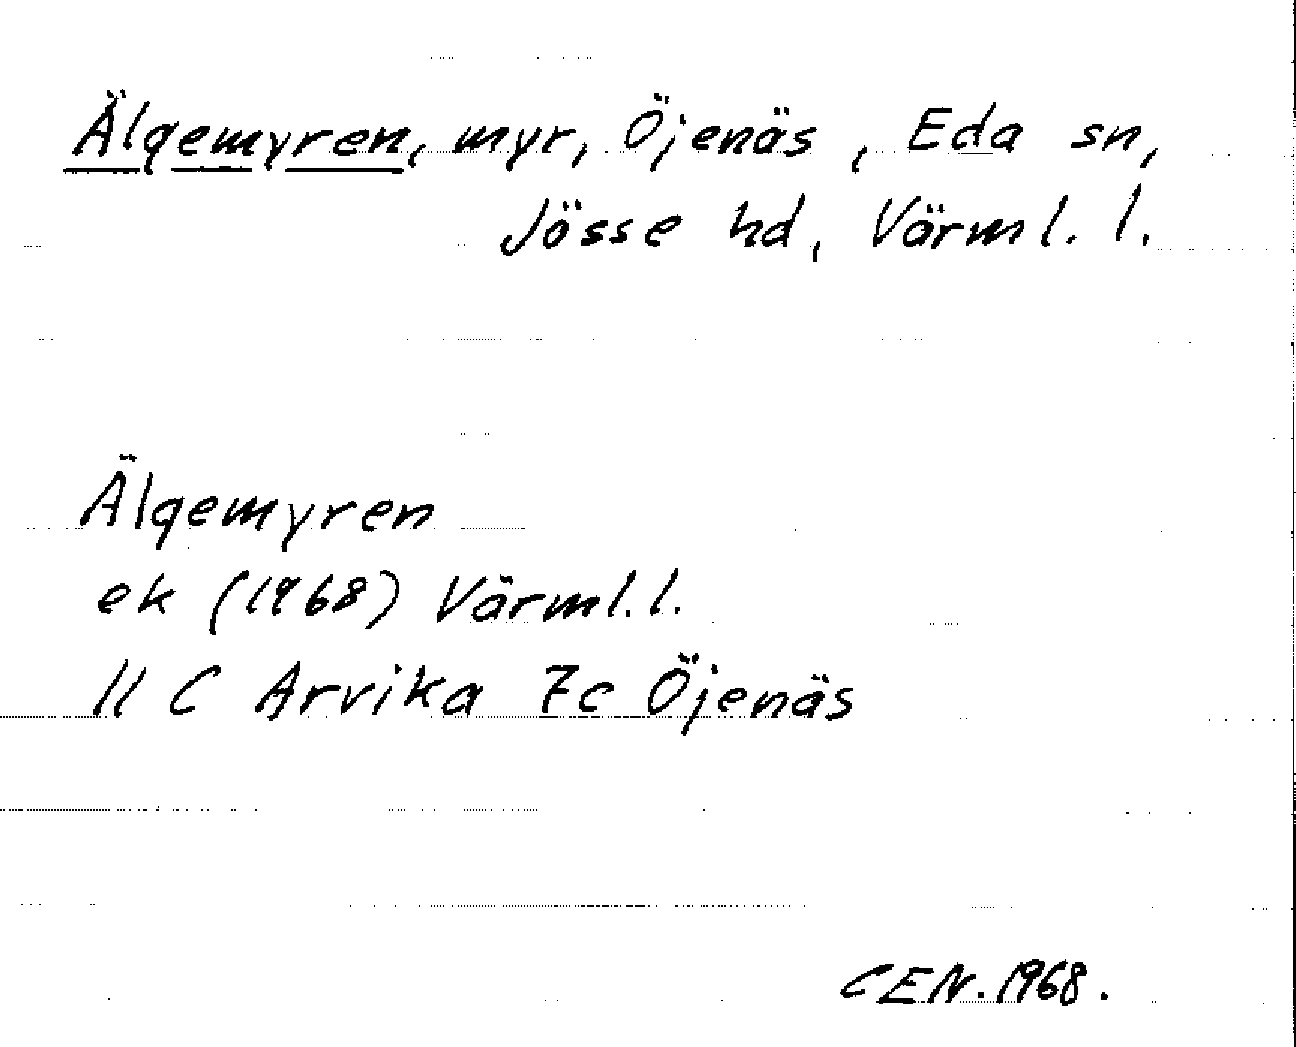 Älgemyren, myr, Öjenäs, Eda sn,
Jösse hd, Värml. l.
Älgemyren
ek (1968) Värml. l.
11 C Arvika 7c Öjenäs
CEN. 1968.